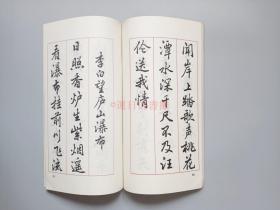 闻岸上踏歌声桃花
潭水深千尺不及汪
伦送我情
李白望庐山瀑布
日照香炉生紫烟遥
看瀑布挂前川飞流